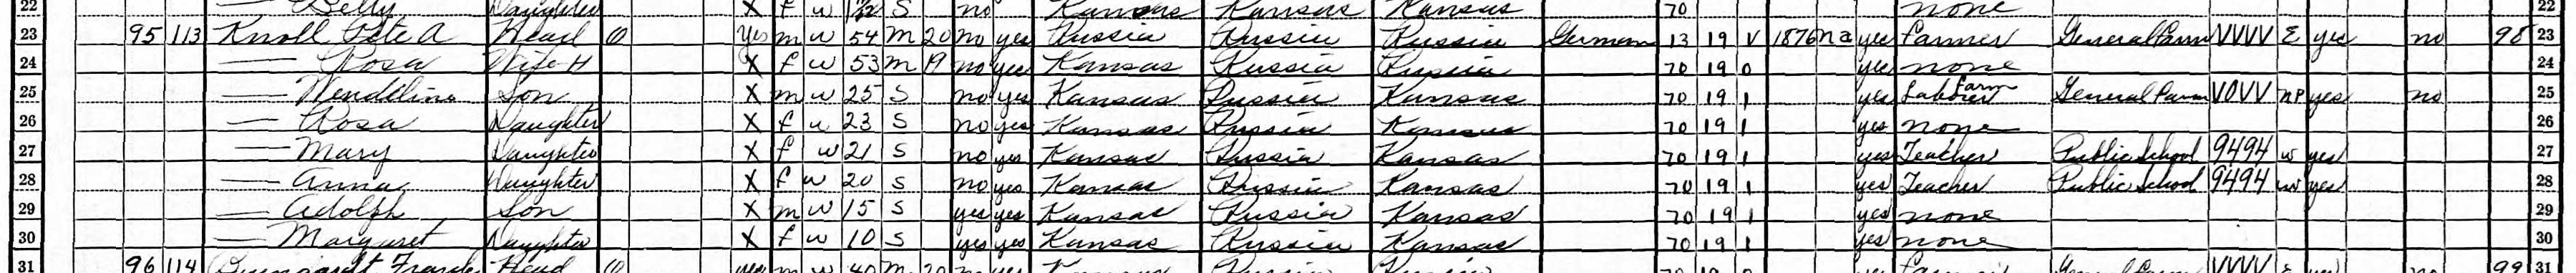 22 — Betty Daughter X f w S no Kansas Kansas Kansas 70 none 22
23 95 113 Knoll Pete A Head O yes m w 54 M 20 no yes Russia Russia Russia German 13 19 V 1876 na yes Farmer General Farm VVVV E yes no 98 23
24 — Rosa Wife H X f w 53 m 19 no yes Kansas Russia Russia 70 19 0 yes none 24
25 — Wendeline Son X m w 25 S no yes Kansas Russia Kansas 70 19 1 yes Farm Laborer General Farm VOVV NP yes no 25
26 — Rosa Daughter X f w 23 S no yes Kansas Russia Kansas 70 19 1 yes none 26
27 — Mary Daughter X f w 21 S no yes Kansas Russia Kansas 70 19 1 yes Teacher Public School 9494 w yes 27
28 — Anna Daughter X f w 20 S no yes Kansas Russia Kansas 70 19 1 yes Teacher Public School 9494 w yes 28
29 — Adolph Son X m w 15 S yes yes Kansas Russia Kansas 70 19 1 yes none 29
30 — Margaret Daughter X f w 10 S yes yes Kansas Russia Kansas 70 19 1 yes none 30
31 96 114 Head O yes m w 40 M 20 no yes Kansas Russia Russia 70 19 0 yes Farmer General Farm VVVV E yes no 99 31